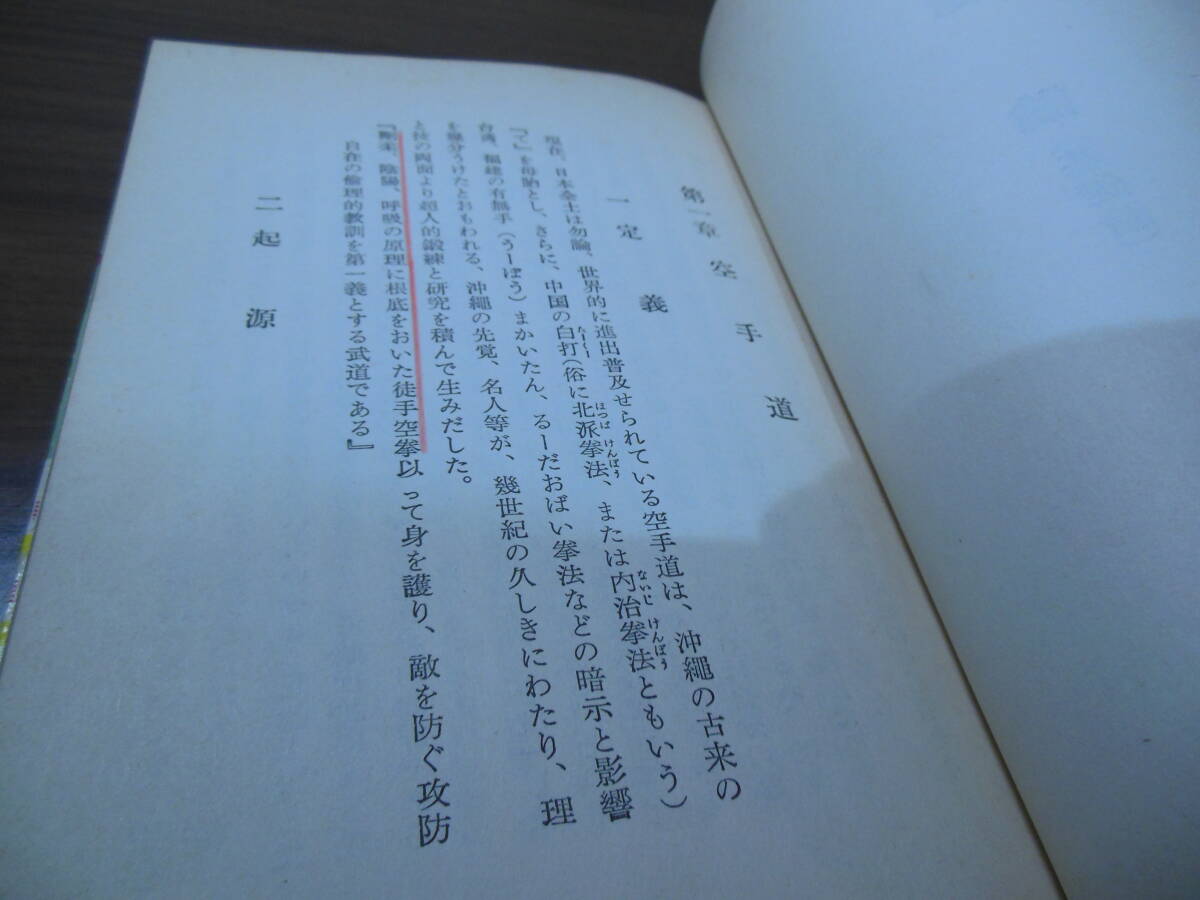 第一章 空手道
一 定義
現在、日本全土は勿論、世界的に進出普及せられている空手道は、沖繩の古来の
『て』を母胎とし、さらに、中国の白打（俗に北派拳法、または内治拳法ともいう）
台湾、福建の有無手（うーぼう）まかいたん、るーだおばい拳法などの暗示と影響
を幾分うけたとおもわれる、沖繩の先覚、名人等が、幾世紀の久しきにわたり、理
と技の両面より超人的鍛練と研究を積んで生みだした。
『剛柔、陰陽、呼吸の原理に根底をおいた徒手空拳以って身を護り、敵を防ぐ攻防
自在の倫理的教訓を第一義とする武道である』
二 起源